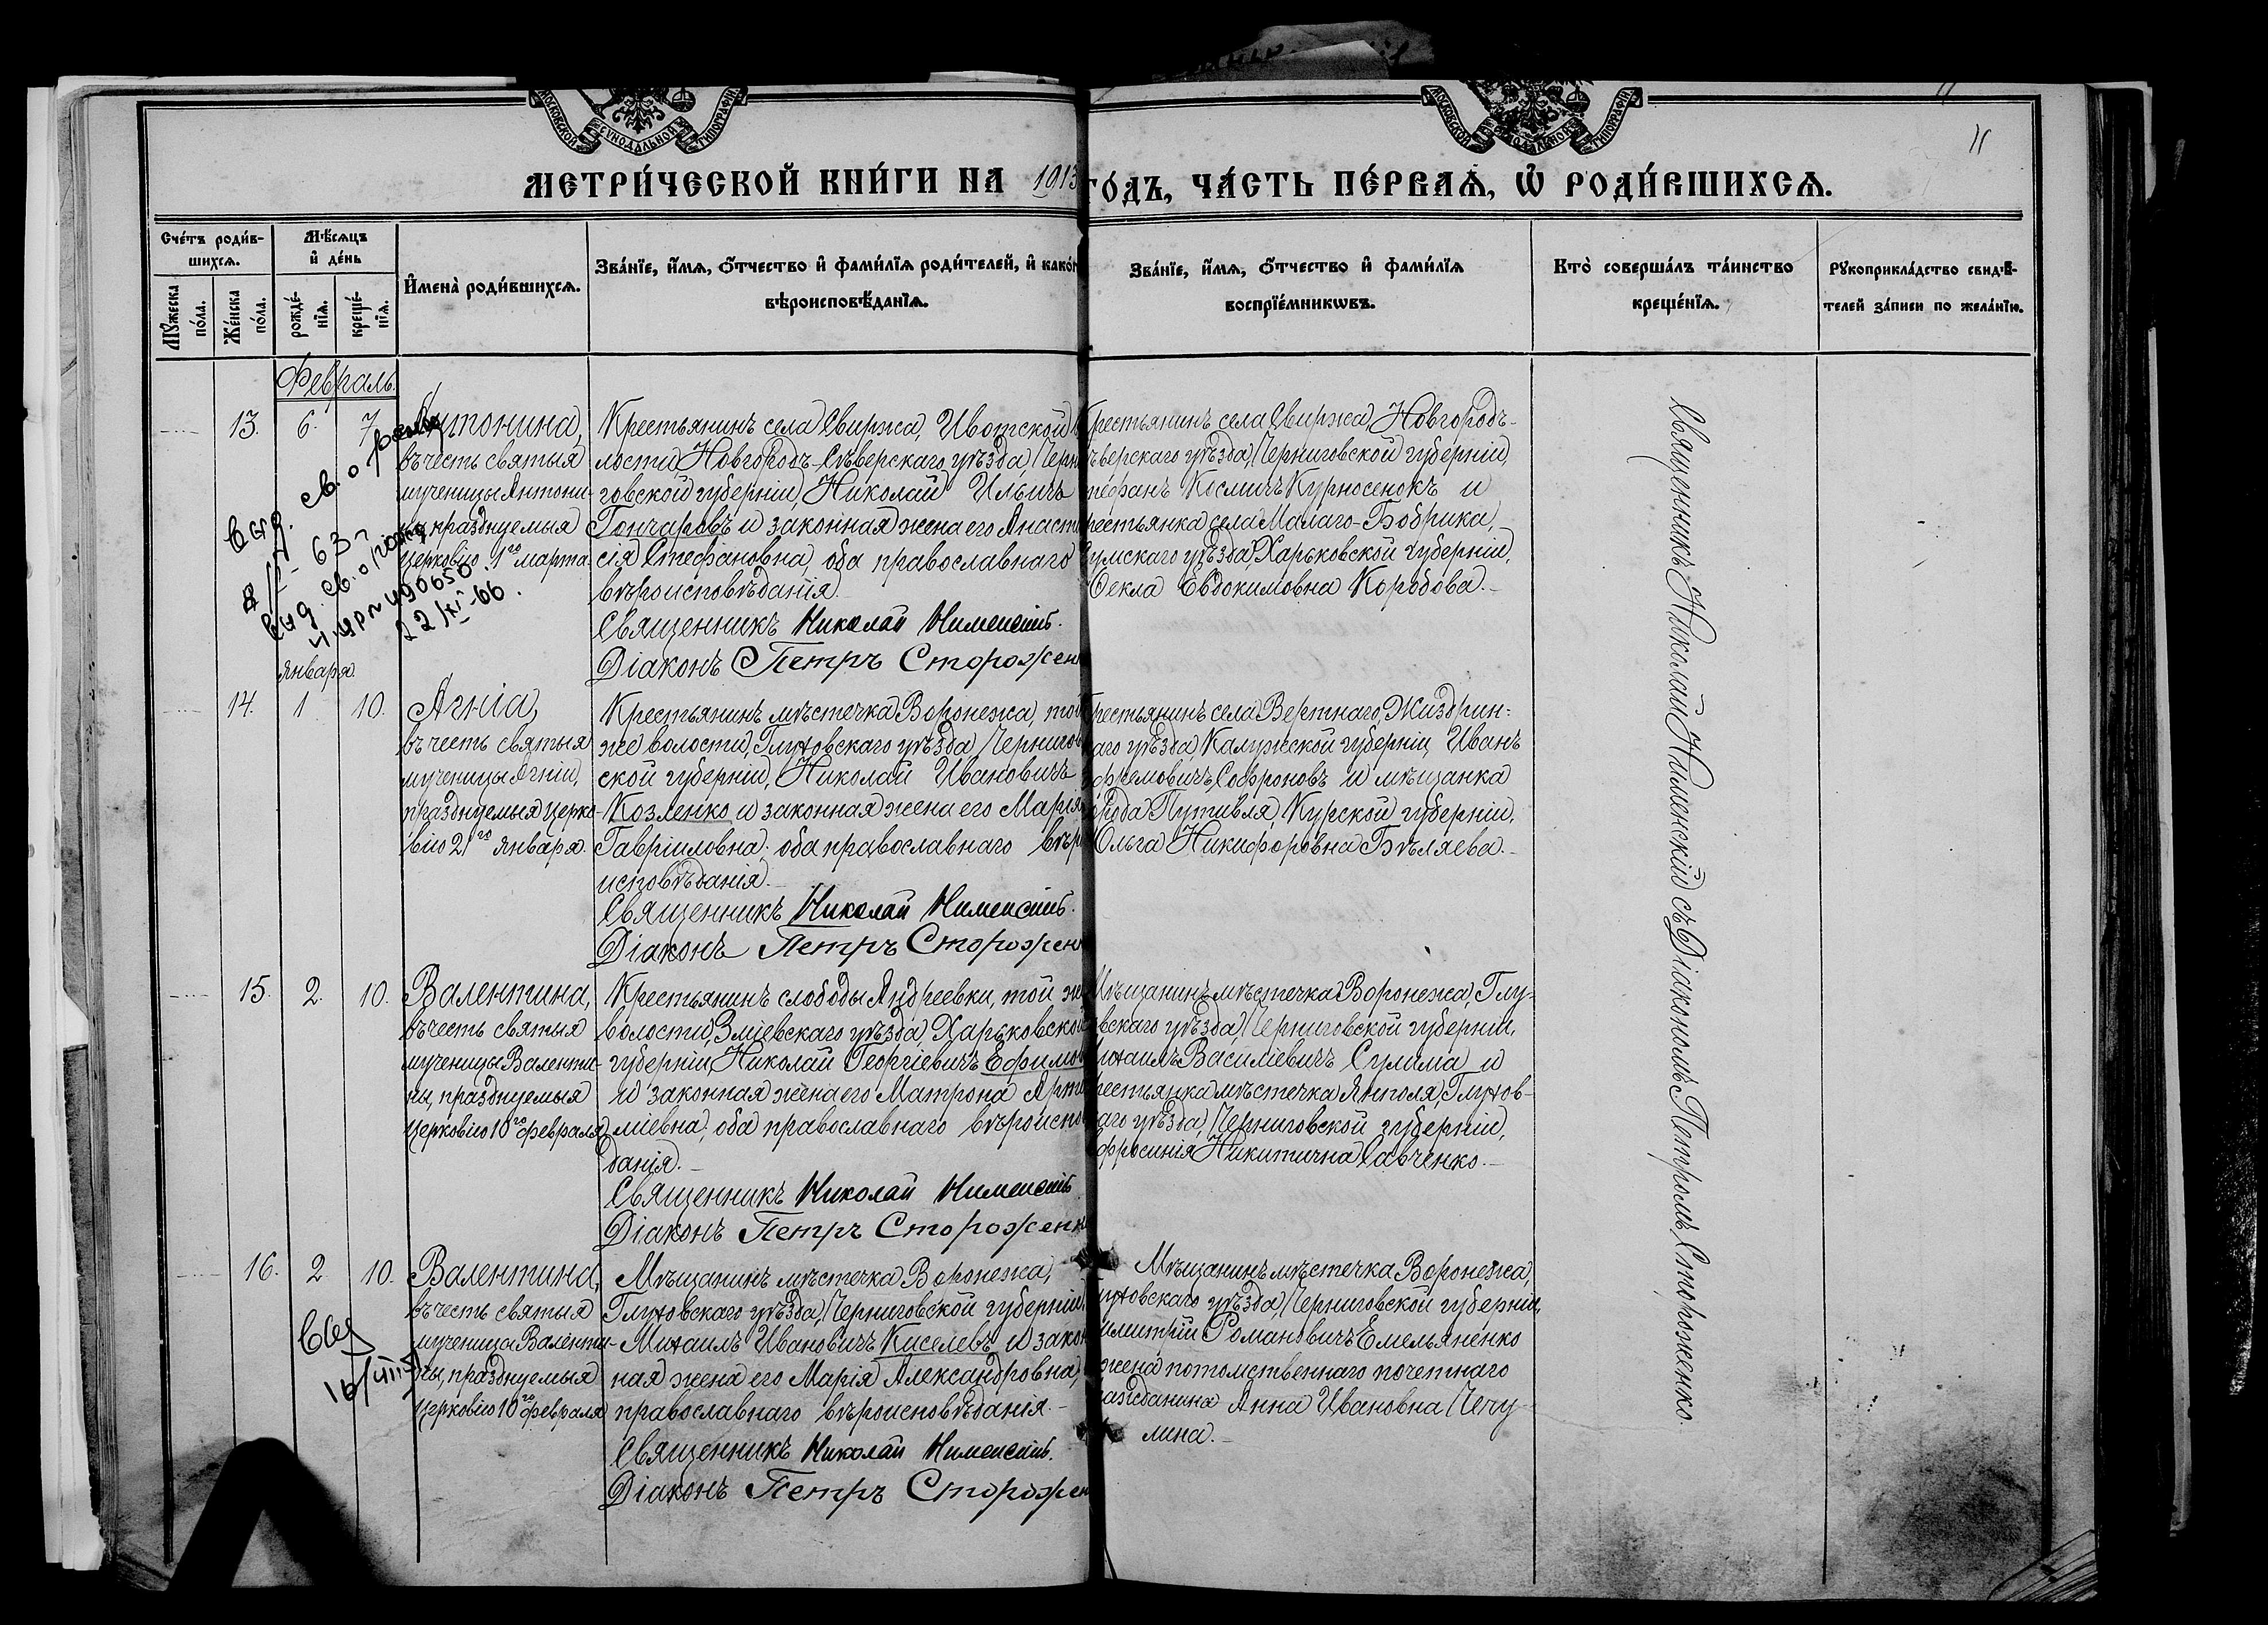 МОСКОВСКОЙ СѴНОДАЛЬНОЙ ТИПОГРАФІИ
МОСКОВСКОЙ СѴНОДАЛЬНОЙ ТИПОГРАФІИ
11
МЕТРИ́ЧЕСКОЙ КНИ́ГИ НА 1913
ГО́ДЪ, ЧА́СТЬ ПЕ́РВАѦ, Ѡ҆ РОДИ́ВШИХСѦ.
Сче́тъ роди́в-
шихсѧ.
Мѣ́сѧцъ
и҆ де́нь
Мꙋ́жеска
по́ла.
Же́нска
по́ла.
рожде́-
нїѧ.
креще́-
нїѧ.
И҆мена̀ роди́вшихсѧ.
Зва́нїе, и҆́мѧ, ѻ҆́тчество и҆ фами́лїѧ роди́телей, и҆ како́г
вѣроисповѣ́данїѧ.
Зва́нїе, и҆́мѧ, ѻ҆́тчество и҆ фами́лїѧ
воспрїе́мникѡвъ.
Кто̀ соверша́лъ та́инство
креще́нїѧ.
Рꙋкоприкла́дство свидѣ́-
телей за́писи по жела́нїю.
Февраль.
13. 6. 7.
Антонина,
въ честь святыя
мученицы Антони-
ны, празднуемыя
церковію 1го марта.
выд. св. о рожд
8/II - 63 г
выд. св. о рожд
490650
22/XI-66.
Крестьянинъ села Свиржа, Ивотской
лости, Новгородъ-Сѣверскаго уѣзда, Черни
говской губерніи, Николай Ильичъ
Гончаровъ и законная жена его Анаста
сія Стефановна, оба православнаго
вѣроисповѣданія.
Священникъ Николай Нименскій.
Діаконъ Петръ Стороженк
рестьянинъ села Свиржа, Новгородъ-
ѣверскаго уѣзда, Черниговской губерніи,
тефанъ Космичъ Курносенокъ и
рестьянка села Малаго-Бобрика,
Сумскаго уѣзда, Харьковской губерніи,
Ѳекла Евдокимовна Коробова.-
Января.
14. 1 10.
Агнія,
въ честь святыя
мученицы Агніи,
празднуемыя церко-
вію 21го января.
Крестьянинъ мѣстечка Воронежа, той
же волости, Глуховскаго уѣзда, Чернигов
ской губерніи, Николай Ивановичъ
Козленко и законная жена его Марія
Гавріиловна, оба православнаго вѣро
исповѣданія.-
Священникъ Николай Нименскій.
Діаконъ Петръ Стороженк
рестьянинъ села Вертнаго, Жиздрин-
аго уѣзда, Калужской губерніи, Иванъ
фремовичъ Софроновъ и мѣщанка
орода Путивля, Курской губерніи,
Ольга Никифоровна Бѣляева.-
15. 2. 10.
Валентина,
въ честь святыя
мученицы Валенти-
ны, празднуемыя
церковію 10го февраля.
Крестьянинъ слободы Андреевки, той же
волости, Зміевскаго уѣзда, Харьковской
губерніи, Николай Георгіевичъ Ефимов
и законная жена его Матрона Арте
міевна, оба православнаго вѣроиспо
данія.-
Священникъ Николай Нименскій
Діаконъ Петръ Стороженк
Мѣщанинъ мѣстечка Воронежа, Глу-
вскаго уѣзда, Черниговской губерніи,
ихаилъ Василіевичъ Сулима и
рестьянка мѣстечка Янполя, Глухов-
аго уѣзда, Черниговской губерніи,
фросинія Никитична Савченко.-
16. 2 10.
Валентина,
въ честь святыя
мученицы Валенти-
ны, празднуемыя
церковію 10го февраля
выд
16/VIII
Мѣщанинъ мѣстечка Воронежа,
Глуховскаго уѣзда, Черниговской губерніи,
Михаилъ Ивановичъ Киселевъ и закон
ная жена его Марія Александровна,
православнаго вѣроисповѣданія.-
Священникъ Николай Нименскій.
Діаконъ Петръ Стороженк
Мѣщанинъ мѣстечка Воронежа,
луховскаго уѣзда, Черниговской губерніи,
имитрій Романовичъ Емельяненко
жена потомственнаго почетнаго
ражданина Анна Ивановна Чечу-
лина.-
Священникъ Николай Нименскій съ Діакономъ Петромъ Стороженко.